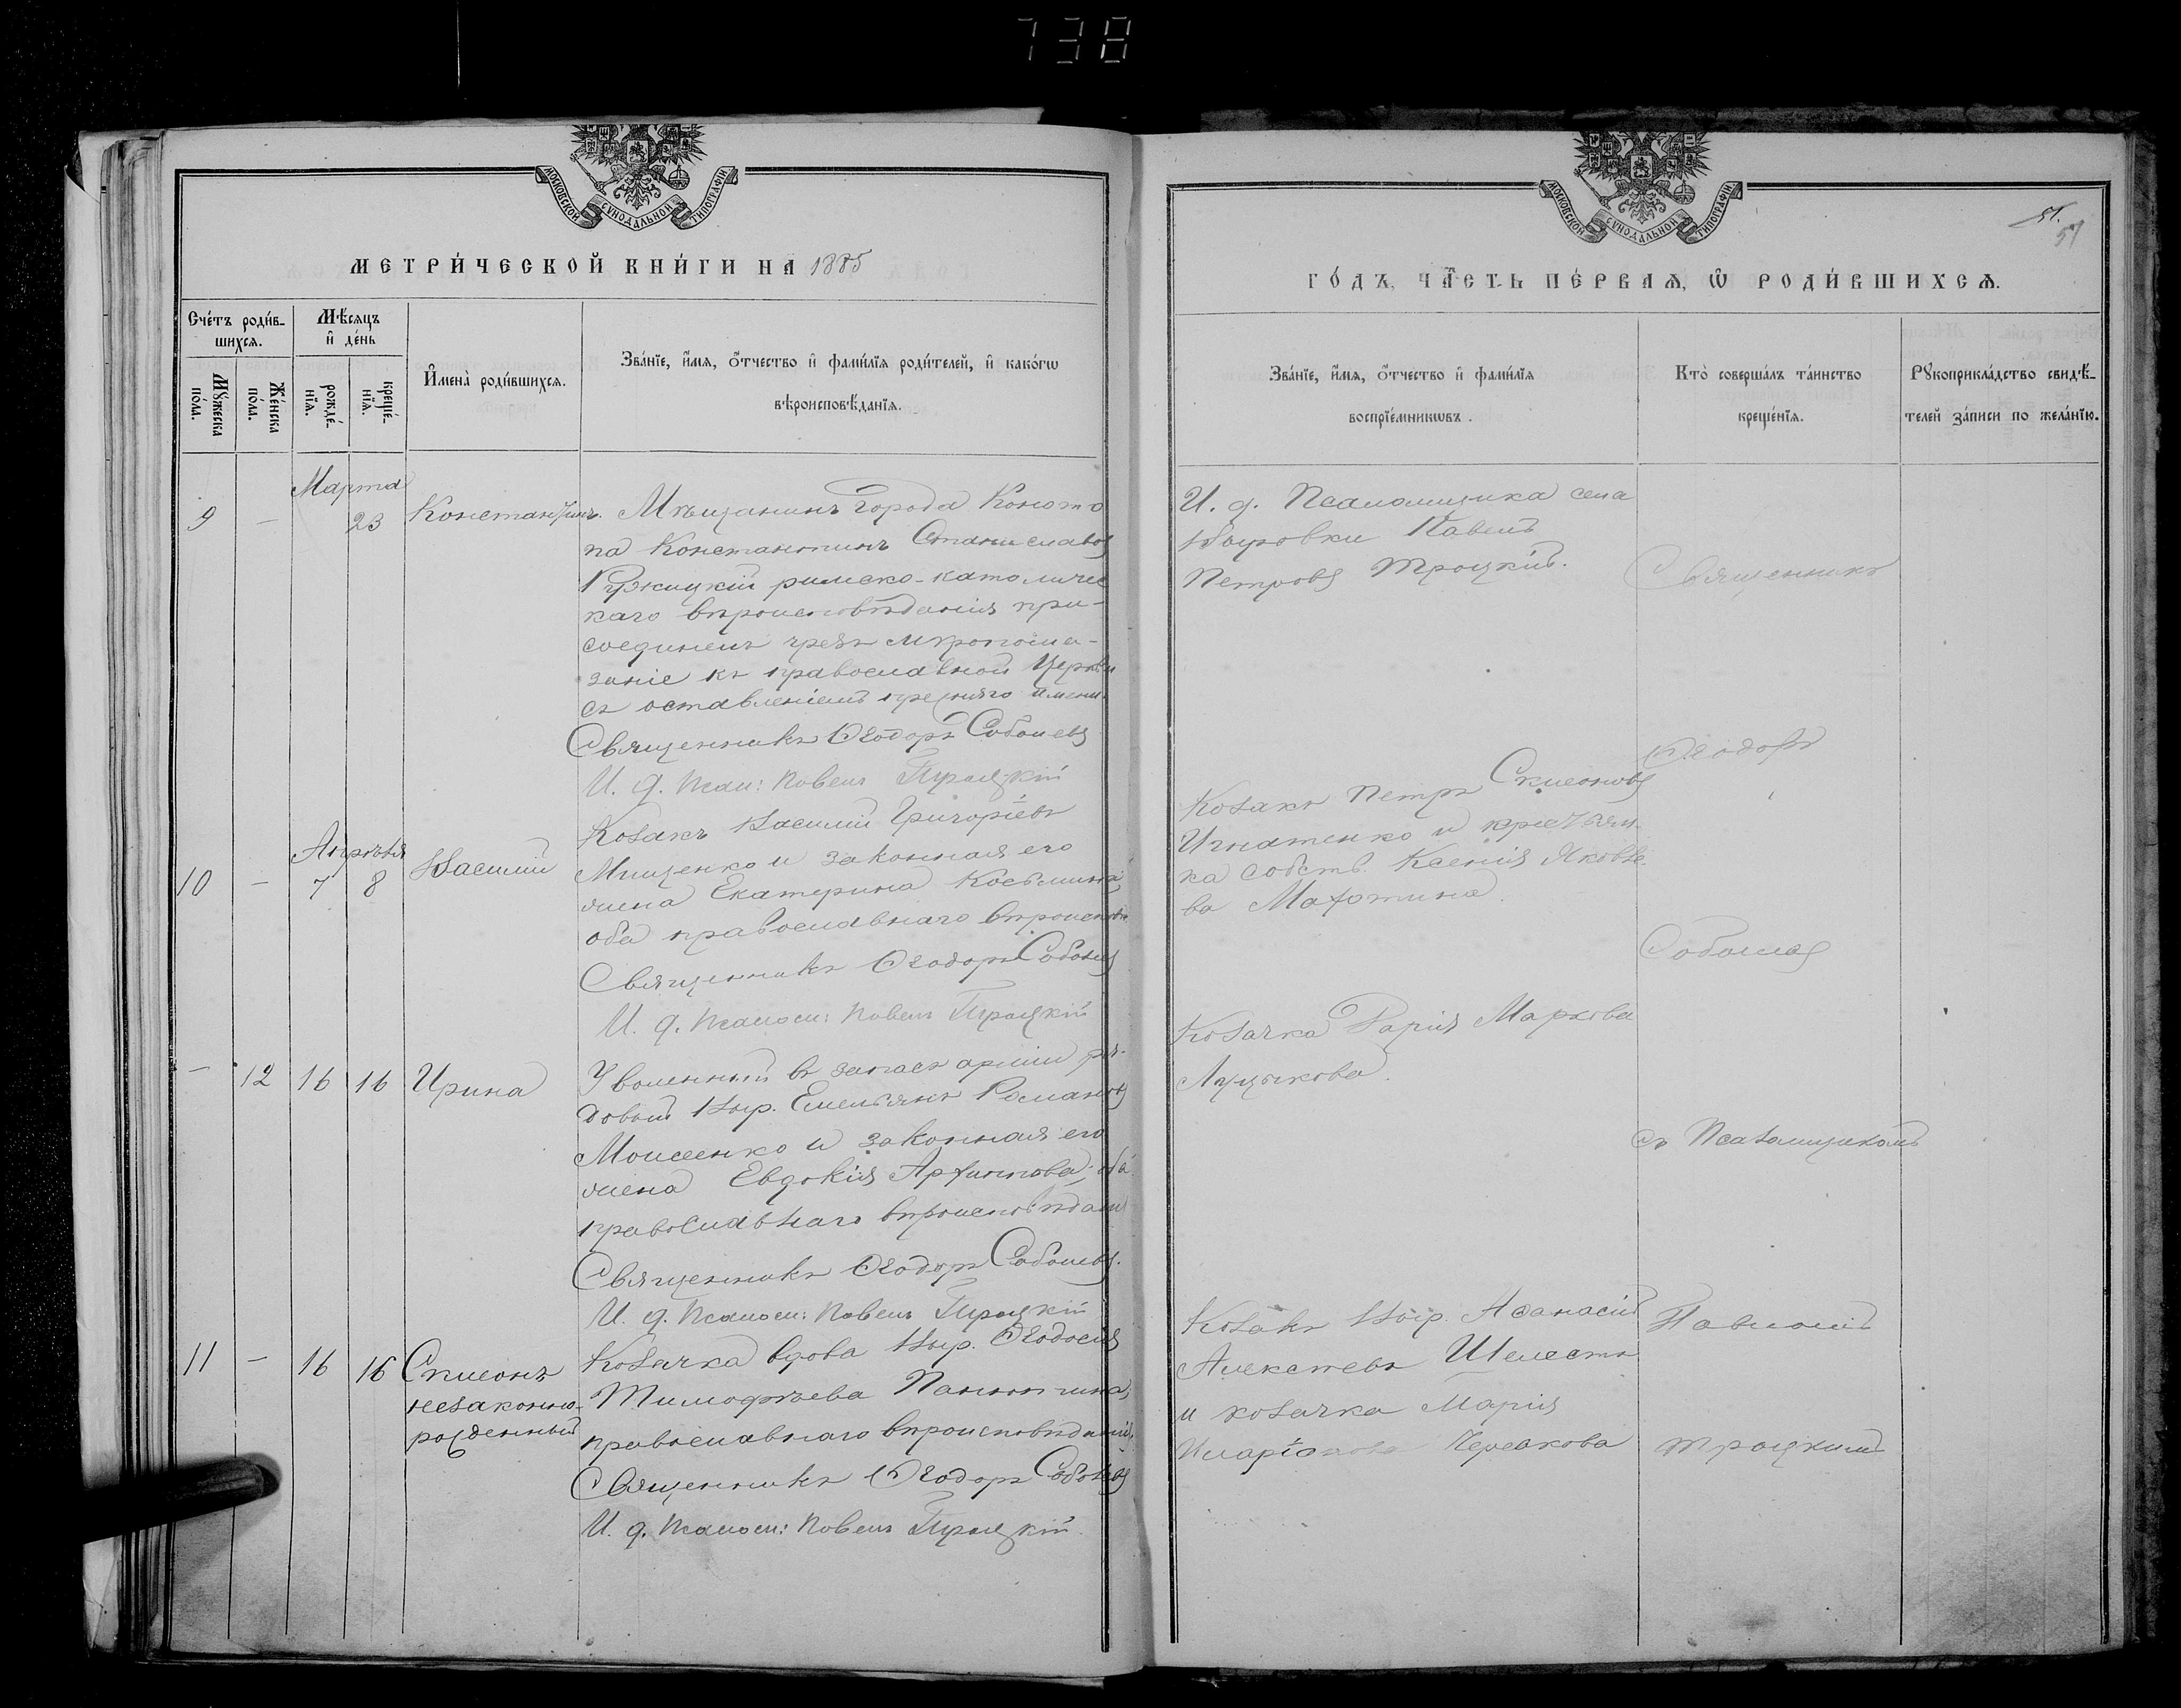 738
МОСКОВСКОЙ СѴНОДАЛЬНОЙ ТИПОГРАФІИ
МЕТРИ́ЧЕСКОЙ КНИ́ГИ НА 1885
Сче́тъ роди́в-
шихсѧ.
Мѣ́сѧцъ
и҆ де́нь
Мꙋ́жеска
по́ла.
Же́нска
по́ла.
рожде́-
нїѧ.
креще́-
нїѧ.
И҆мена̀ роди́вшихсѧ.
Зва́нїе, и҆́мѧ, ѻ҆́тчество и҆ фами́лїѧ роди́телей, и҆ како́гѡ
вѣроисповѣ́данїѧ.
Марта
9 - 23 Константинъ. Мѣщанинъ города Коното
па Константинъ Станиславов
Ружицкій римско-католичес
каго вѣроисповѣданія при-
соединенъ чрезъ мѵропома-
заніе къ православной Церкви
съ оставленіемъ прежняго имени.
Священникъ Ѳеодоръ Соболевъ
И. д. Псал: Павелъ Троцкій
Апрѣля
10 - 7 8 Василій
Козакъ Василій Григоріевъ
Мищенко и законная его
жена Екатерина Косьмина,
оба православнаго вѣроисповѣ.
Священникъ Ѳеодоръ Соболев
И. д. Псалом: Павелъ Троцкій
- 12 16 16 Ирина
Уволенный въ запасъ арміи ря-
довый Выр. Емельянъ Романовъ
Моисеенко и законная его
жена Евдокія; оба
православнаго вѣроисповѣдані
Священникъ Ѳеодоръ Соболевъ.
И. д. Псалом: Павелъ Троцкій
11 - 16 16 Сѵмеонъ
незаконно-
рожденный
Козачка вдова Выр. Ѳеодосія
Тимофѣева
православнаго вѣроисповѣданія.
Священникъ Ѳеодоръ Соболев
И. д. Псалом: Павелъ Троцкій.
МОСКОВСКОЙ СѴНОДАЛЬНОЙ ТИПОГРАФІИ
51.
51
ГО́ДЪ, ЧА́СТЬ ПЕ́РВАѦ, Ѡ҆ РОДИ́ВШИХСѦ.
Зва́нїе, и҆́мѧ, ѻ҆́тчество и҆ фами́лїѧ
воспрїе́мникѡвъ.
Кто̀ соверша́лъ та́инство
креще́нїѧ.
Рꙋкоприкла́дство свидѣ́-
телей за́писи по жела́нїю.
И. д. Псаломщика села
Выровки Павелъ
Петровъ Троцкій.
Священникъ
Козакъ Петръ Сѵмеоновъ
Игнатенко и крестьян-
ка собств. Ксенія Яковле-
ва
Ѳеодоръ
Соболевъ
Козачка Дарія Маркова
Луцыкова.
съ Псаломщикомъ
Козакъ Выр. Аѳанасій
Алексѣевъ Шелестъ
и козачка Марія
Иларіонова
Павломъ
Троцкимъ